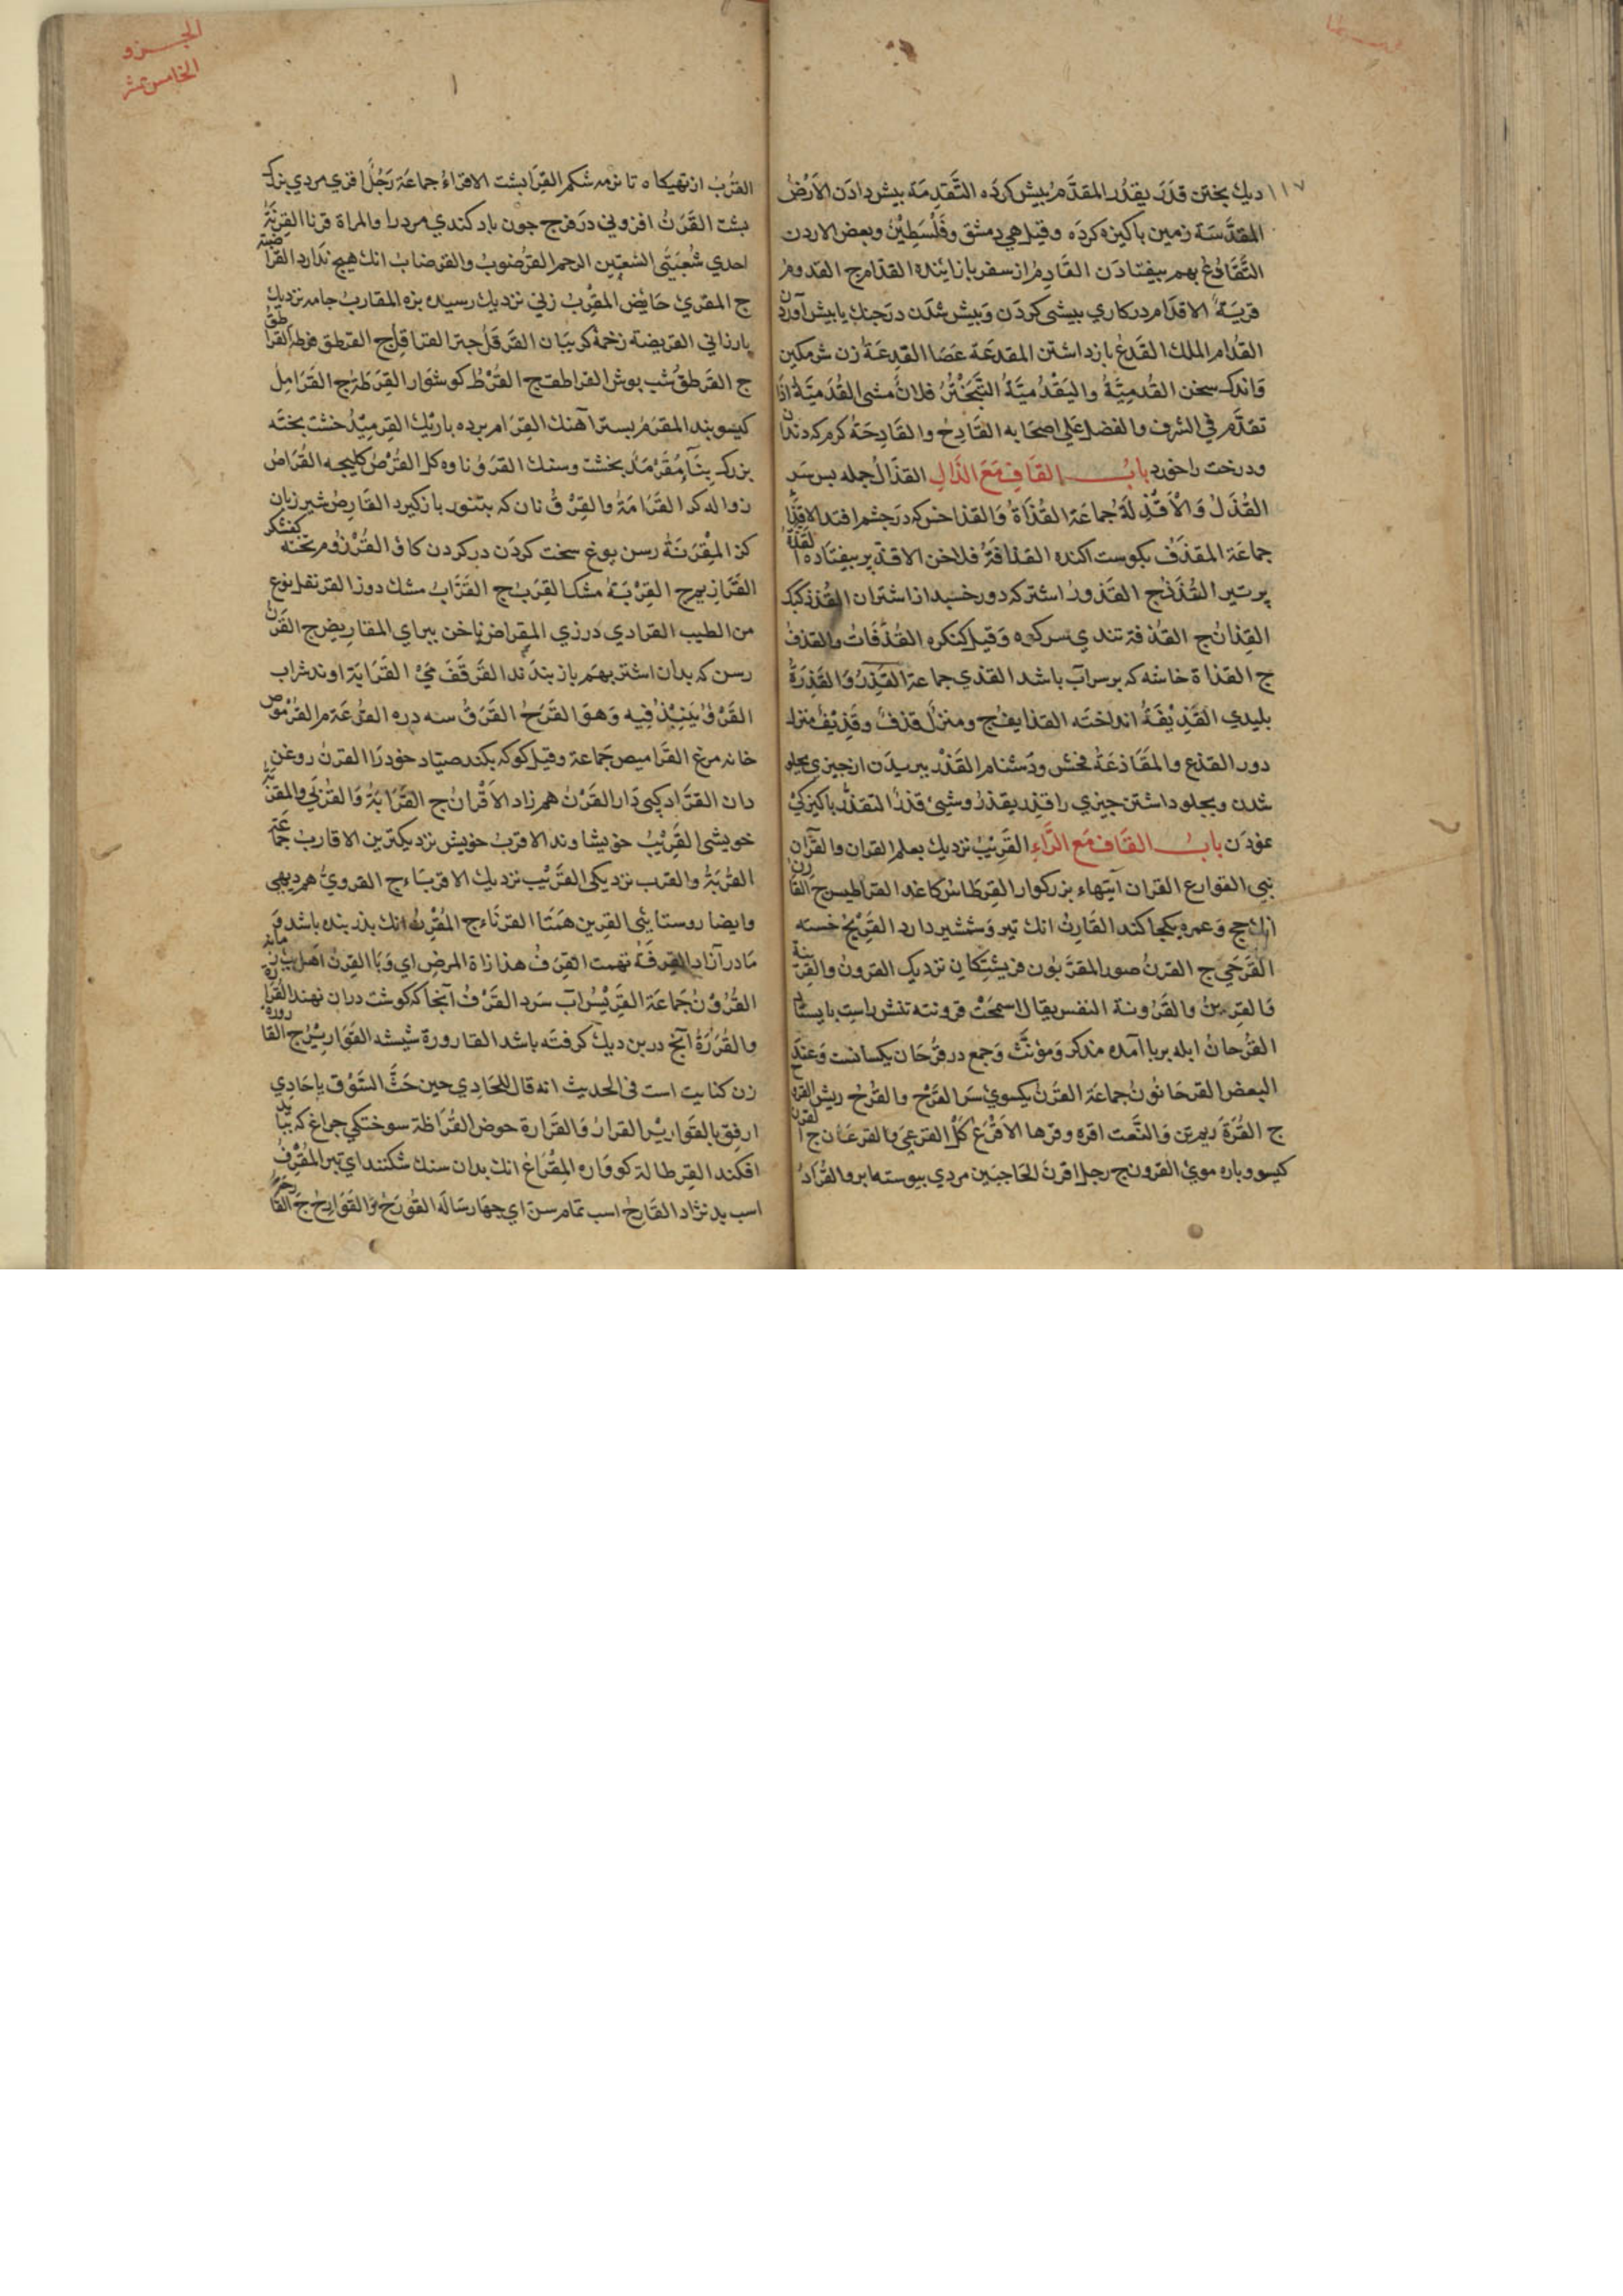 ١١٧
ديك بختن قدَرَ يقدُر المقدَّمُ بيش كرده التَّقدِمَة بيش دادَن الاَرْضُ
المقدَّسَة زمين باكيزه كردَه وقيل هي دمشق وفَلَسْطِيْنُ وبعض الاردن
التَّقَادُعُ بهم بيفتادَن القَادِمُ از سفر باز اينده القدّام ج القدومُ
قريَةٌ الاقدَام دركاري بيشى كردَن وَبيش شدَن درجنك يا بيش آوردن
القُدَام الملك القَدعُ بازداشتن المقدعَة عَصَا القدِعَةُ زن شرمكين
واندك سخن القُدمِيَّةُ واليَقْدُميَّةُ التَّبَخْتُر فلانٌ مشى القُدَميَّةُ اذا
تقدَّم في الشرف والفضل على اصحَابه القَادِحُ والقَادِحَةُ كرم كه دندان
ودرخت را خورد بابُ القَافِ مَعَ الذَّالِ القذَالُ جمله بس سَر
القُذُلُ وَالاَقْذِلَةُ جُماعَة القُذَاةُ وَالقذا خس كه درجشم افتد الاقذا
جماعَة المقذَّفُ بكوست اكنده القذافَةُ فلاخن الاقذّ بر بيفتاده القُذَّةُ
پر تير القُذَذُ ج القذورُ اشتر كه دور خسبد از اشتران القُذذ كيك
القِذانُ ج القذفة تندي سر كوه وَقيل كنكره القُذُفَاتُ والقذفُ
ج القذاة خاشه كه برسر آب باشد القذي جماعة القَذَرُ وَالقَذَرَةُ
بليدي القَذِيْفَةُ انداخته القذايف ج ومنزلٌ قذفٌ وقَذِيْفٌ منزل
دور القذع والمقَاذعَةُ فحش ودَشنام القَذْذ ببريدَن از جيزي بجلو
شدن وبجلو داشتن جيزي را قذِر يقذَرُ وشيئ قذرٌ التقذُّر باكيزكيْ
نمودَن بابُ القَاف مَع الرَّاءِ القَرِيْبُ نزديك بعلم القران والقرْآن
نبي القوارع القران آيتهاء بزركوار القِرطَاسُ كاغد القراطيس ج القارنُ
انك حج وَعمره بكجا كند القَارِنُ انك تير وَشمشير دارد القَرِيْحُ خسته
القَرحَى ج القرنُ صور المقرَّبون فريشتكان نزديك القرونُ والقرينة
وَالقرِينُ والقَرُونة النفس يقال اسمحَتْ قرونته تنش راست بايستاد
القُرحانُ ابله بر نا آمده مذكر وَمؤنَّث وَجمع در قُرْحَان يكسانست وَعند
البعض القرحَانُونُ جماعَة القَرْنُ كيسويْ سَر القَرْح والقُرْحُ ريش القره
ج القُرْةَ ريمرين وَالنَّعت اقره وقرها الاَقْرَعُ كَلْ القرعى والقرعَان ج القرن
كيسو وباره مويْ القرون ج رجل اقرنُ الحَاجبَين مردي بيوسته ابرو القُرَادُ
الجزو
الخامس عشر
القُرْبُ از تهيكاه تا نرمه شكم القِرَا بشت الاقراءُ جماعَة رَجُلٌ اقري مردي بزرك
بشت القَرَنُ افزوني درفرج جون باد كندي مردرا والمراة قرنا القِرنَةُ
احدي شُعبَتَى الشعبتين الرحم القُرضوبُ والقرضابُ انك هيج ندارد القراضبة
ج المقريُ حَايض المقْرِبُ زني نزديك رسيده بزه المقاربُ جامه نزديك
بارزاني القريضة زخمه كربيَان القَرقلُ جبّر القراقِل ج القرطق قرطه القراطق
ج القَرطَقُ شب بوش القراطق ج القُرْطُ كوشوَار القِرَطَةُ ج القَرَامِلُ
كيسوبند المقرَمُ بستر آهنك القِرَام برده باريك القِرميْدُ خشت بخته
بزرك بِنَآءٌ مُقَرْمَدٌ بخشت وسنك القروُ ناوه كل القُرْصُ كليجه القُرَاصُ
زواله كر القَرَامَةُ والقِرْفُ نان كه بتنور باز كيرد القَارِصُ شير زبان
كز المِقْرَنَةُ رسن يوغ سخت كردَن دركردن كاو القُرْزُومُ تخته كفشكر
القَرَازيم ج القِرْبَةُ مشك القِرَبُ ج القَرَّابُ مشك دوز القرنفل نوع
من الطيب القرادي درزي المقراض ناخن بيراي المقاريض ج القَرَنُ
رسن كه بدان اشتر بهم باز بندند القَرقَفُ ميْ القَرَابَة اوند شراب
القَرْوُ يُنبَذُ فِيه وَهو القَرَحُ القَرَقُ سه دره القُرْعَة م القُرْمُوصُ
خانه مرغ القَرَاميص جَماعة وقيل كوكه بكند صيّاد خودرا القرنُ روغن
دان القَرَّاد كپى دَار القَرْنُ همزاد الاَقْرَانُ ج القَرَابَةُ وَالقُرْبَى والمقرَبَةُ
خويشى القَرِيْبُ خويشاوند الاقربُ خويش نزديكترين الاقاربُ جَمَاعَة
القُرْبَةُ والقرب نزديكى القَرِيْب نزديك الاقربَاء ج القرويُّ هم ديهى
وايضا روستايئى القرين همتا القرنَاء ج المُقْرِفُ انك بدر بنده باشد وَ
مَادر آزاد القِرفَةُ تهمت القِرَفُ هذا زاة المرض اي وَبا القِرنُ اهل زمانه
القُرُوْنُ جَماعَة القَرِيْسُ آب سَرد القَرْفُ آنجا كه كوشت دران نهند القرارة
والقُرَرَةُ آنج دربن ديك كرفته باشد القارورة شيشه القَوَارِيْرُ ج القارورة
زن كنايت است فى الحديث انه قال للحَادِي حين حَثَّ السَّوْق ياحَادِي
ارفِق بالقوارِيْر القرارُ وَالقَرَارة حوض القُرَاظة سوختكي جراغ كه بيد
افكند القِرطالة كوواره المِقْرَاعُ انك بدان سنك شكنند اي تبر المُقْرِفُ
اسب بدنژاد القَارِحُ اسب تمام سنّ اي جهارسَاله القُرَحُ وَالقَوَارِحُ ج القارحة